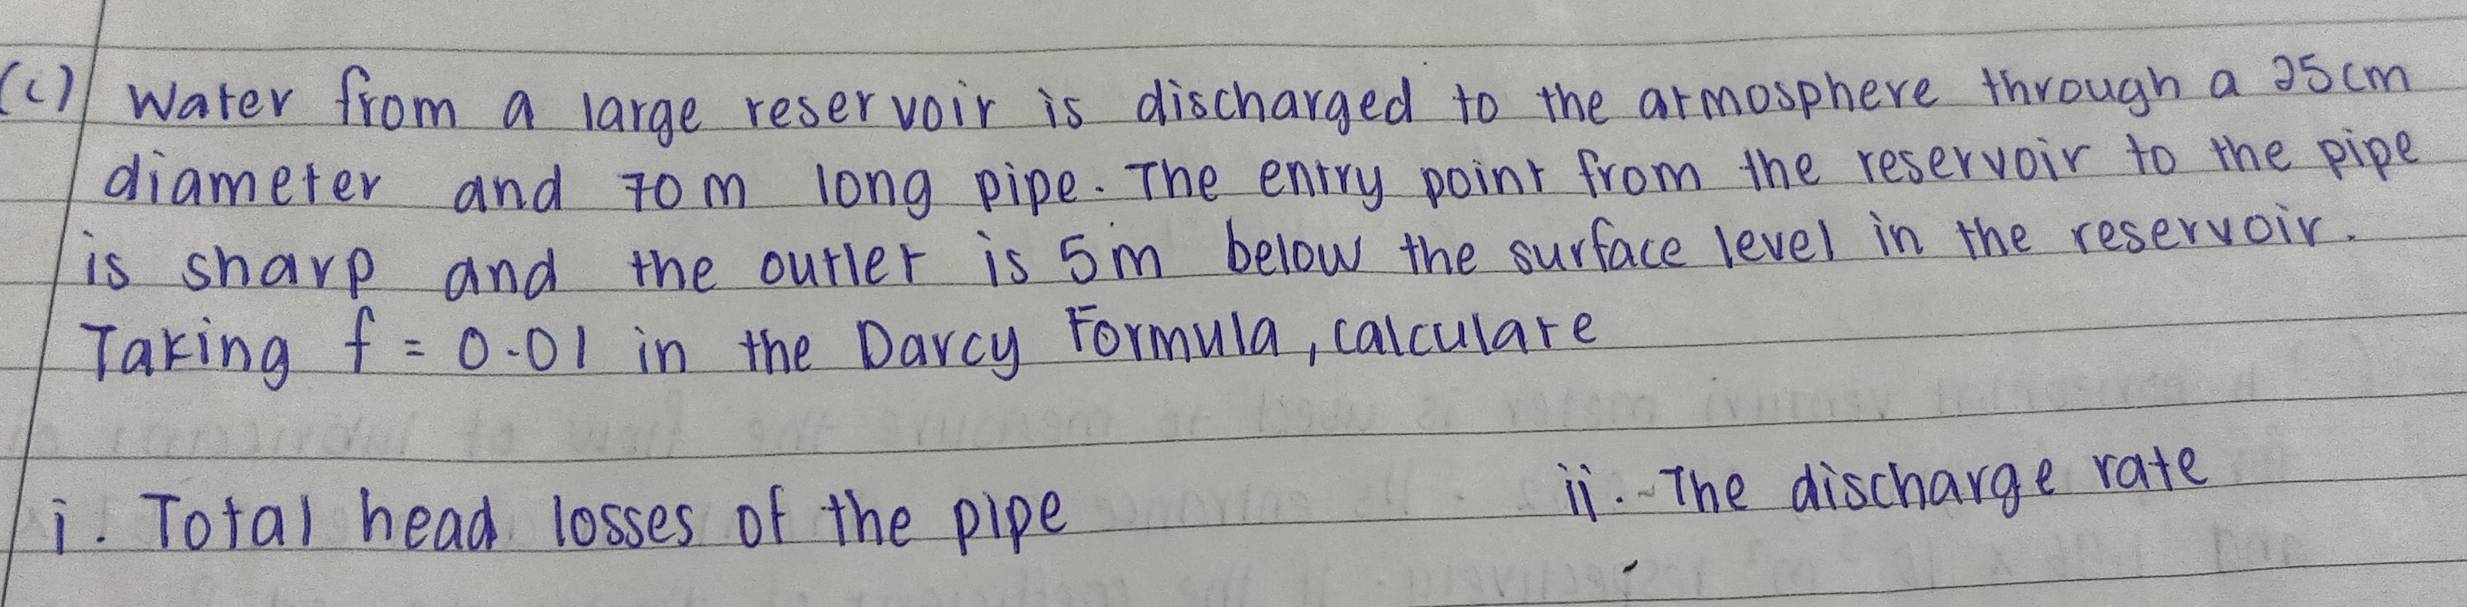 (c) Water from a large reservoir is discharged to the atmosphere through a 25cm
diameter and 70m long pipe. The entry point from the reservoir to the pipe
is sharp and the outlet is 5m below the surface level in the reservoir.
Taking f = 0.01 in the Darcy Formula, calculate
i. Total head losses of the pipe ii. The discharge rate